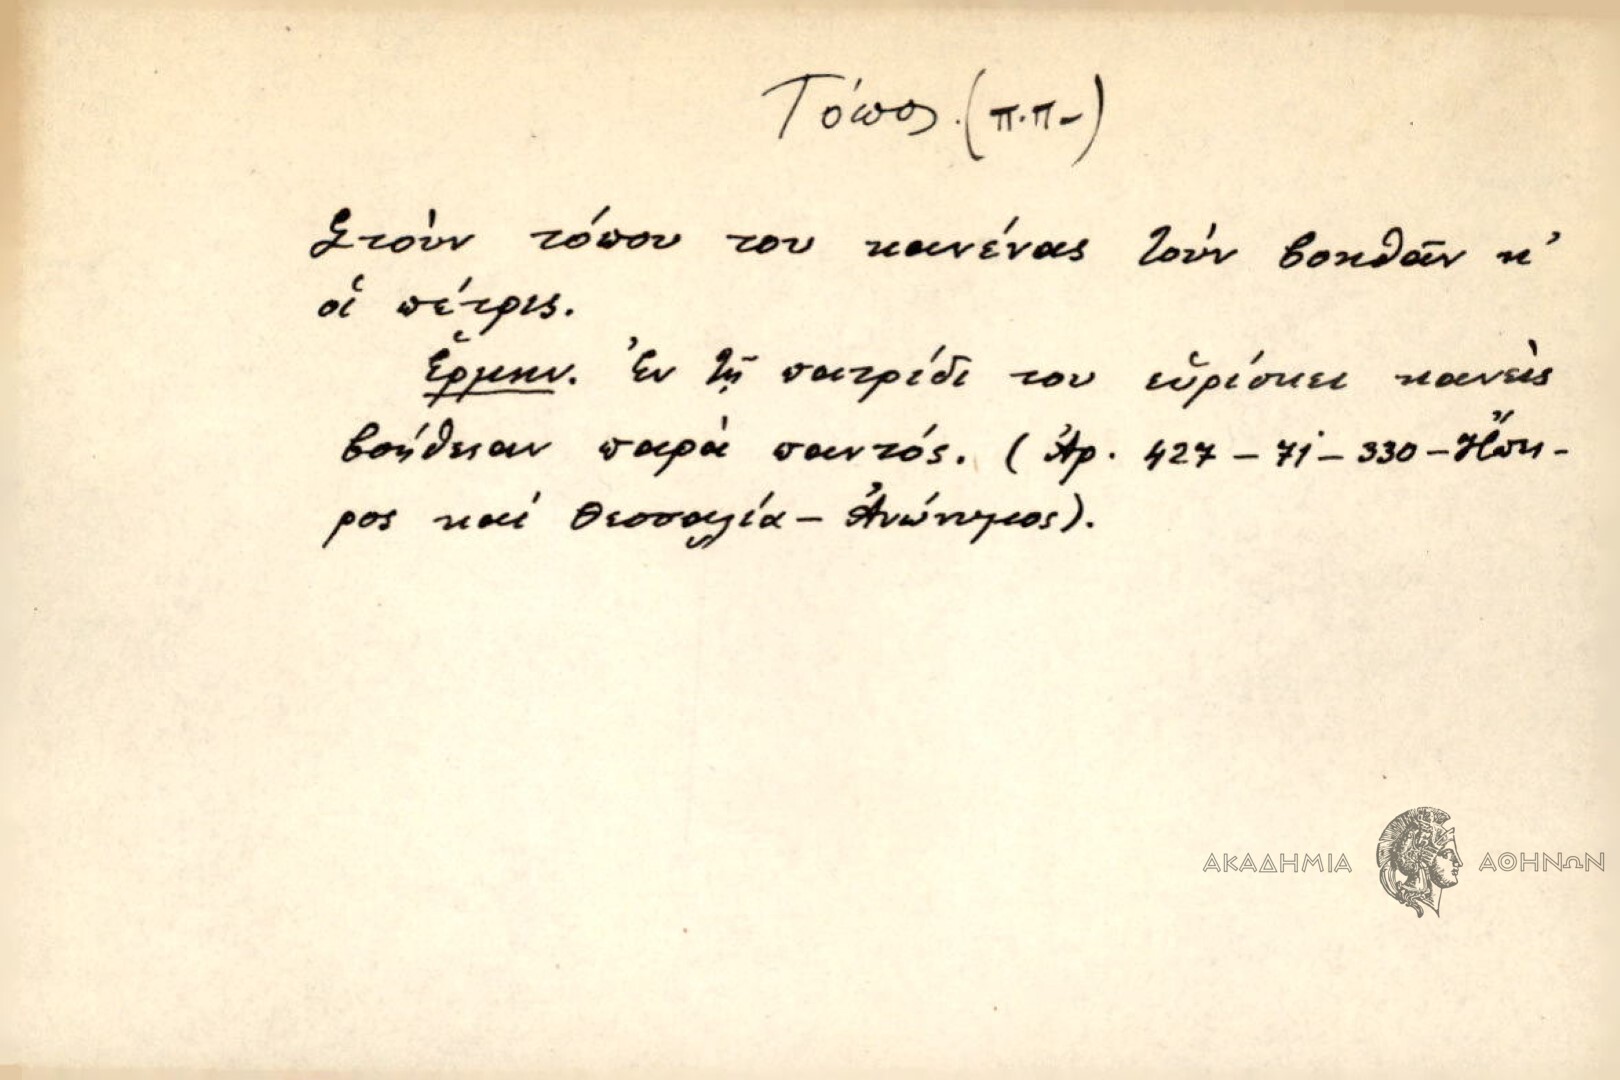 Τόπος. (π.π-)
Στοὺν τόπου του κανένας τοὺν βοηθᾶν κ'
οἱ πέτρις.
Ἑρμην. Ἐν τῇ πατρίδι του εὑρίσκει κανεὶς
βοήθειαν παρὰ παντός. (Ἀρ. 427 – 71 – 330 – Ἤπει-
ρος καὶ Θεσσαλία – Ἀνώνυμος).
ΑΚΑΔΗΜΙΑ ΑΘΗΝΩΝ